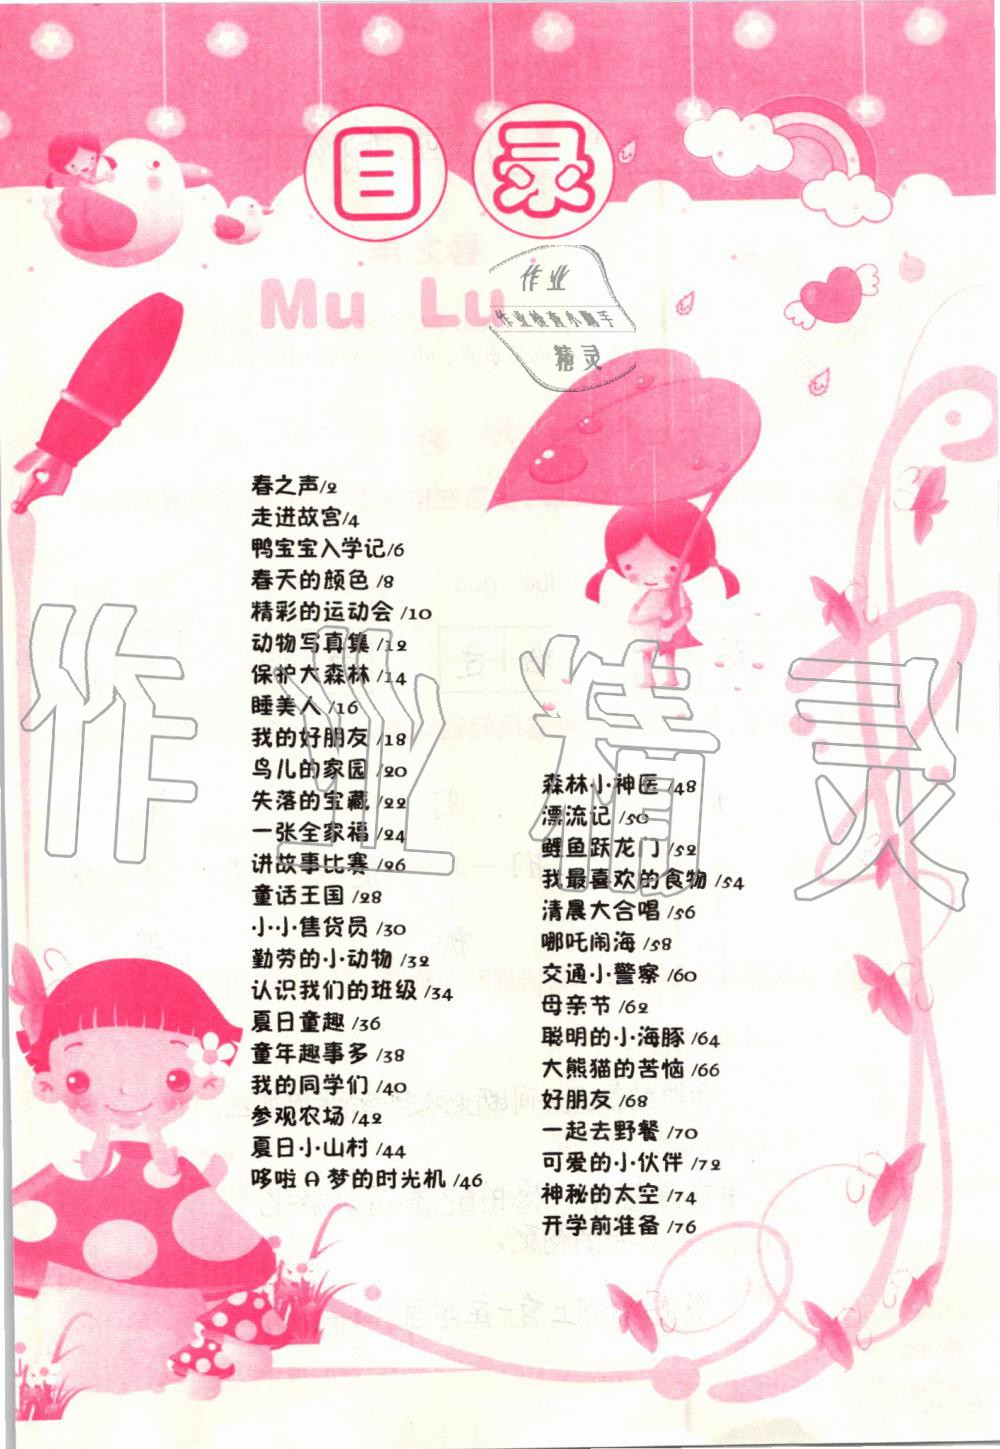 目录
Mu Lu
作业
作业检查小助手
精灵
春之声/2
走进故宫/4
鸭宝宝入学记/6
春天的颜色 /8
精彩的运动会 /10
动物写真集 /12
保护大森林 /14
睡美人 /16
我的好朋友 /18
鸟儿的家园 /20
失落的宝藏 /22
一张全家福 /24
讲故事比赛 /26
童话王国 /28
小小售货员 /30
勤劳的小动物 /32
认识我们的班级 /34
夏日童趣 /36
童年趣事多 /38
我的同学们 /40
参观农场 /42
夏日小山村 /44
哆啦 A 梦的时光机 /46
森林小神医 /48
漂流记 /50
鲤鱼跃龙门 /52
我最喜欢的食物 /54
清晨大合唱 /56
哪吒闹海 /58
交通小警察 /60
母亲节 /62
聪明的小海豚 /64
大熊猫的苦恼 /66
好朋友 /68
一起去野餐 /70
可爱的小伙伴 /72
神秘的太空 /74
开学前准备 /76
作业精灵